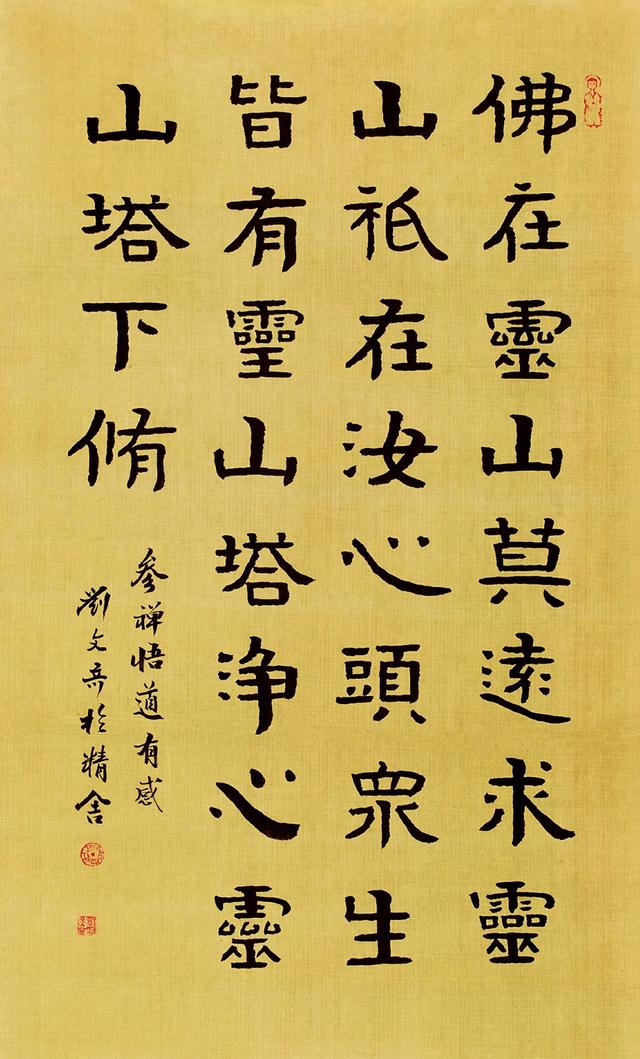 佛在靈山莫遠求靈
山祇在汝心頭衆生
皆有靈山塔淨心靈
山塔下脩
參禪悟道有感
劉文於精舍